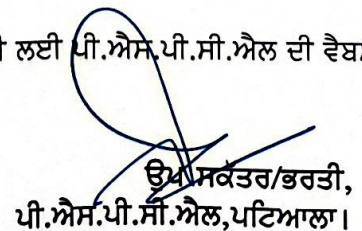 ਲਈ ਪੀ.ਐਸ.ਪੀ.ਸੀ.ਐਲ ਦੀ
ਉਪ ਸਕੱਤਰ/ਭਰਤੀ,
ਪੀ.ਐਸ.ਪੀ.ਸੀ.ਐਲ,ਪਟਿਆਲਾ।